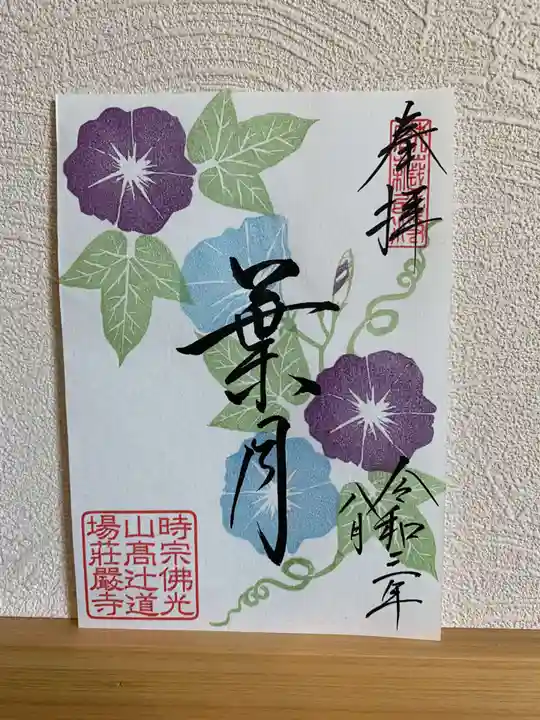 奉拝
葉月
令和二年
八月
時宗佛光
山髙辻道
場莊嚴寺